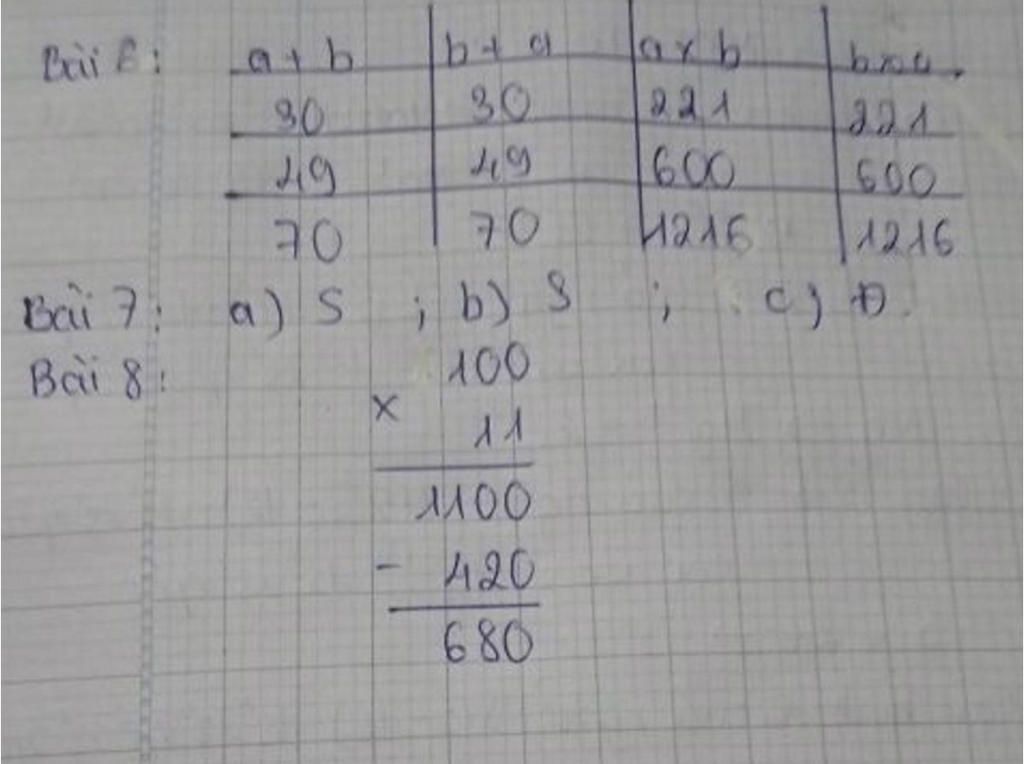 Bài 6: a + b b + a a x b b x a.
30 30 221 221
49 49 600 600
70 70 1216 1216
Bài 7: a) S ; b) S ; c) Đ.
Bài 8: 100
x
11
1100
- 420
680